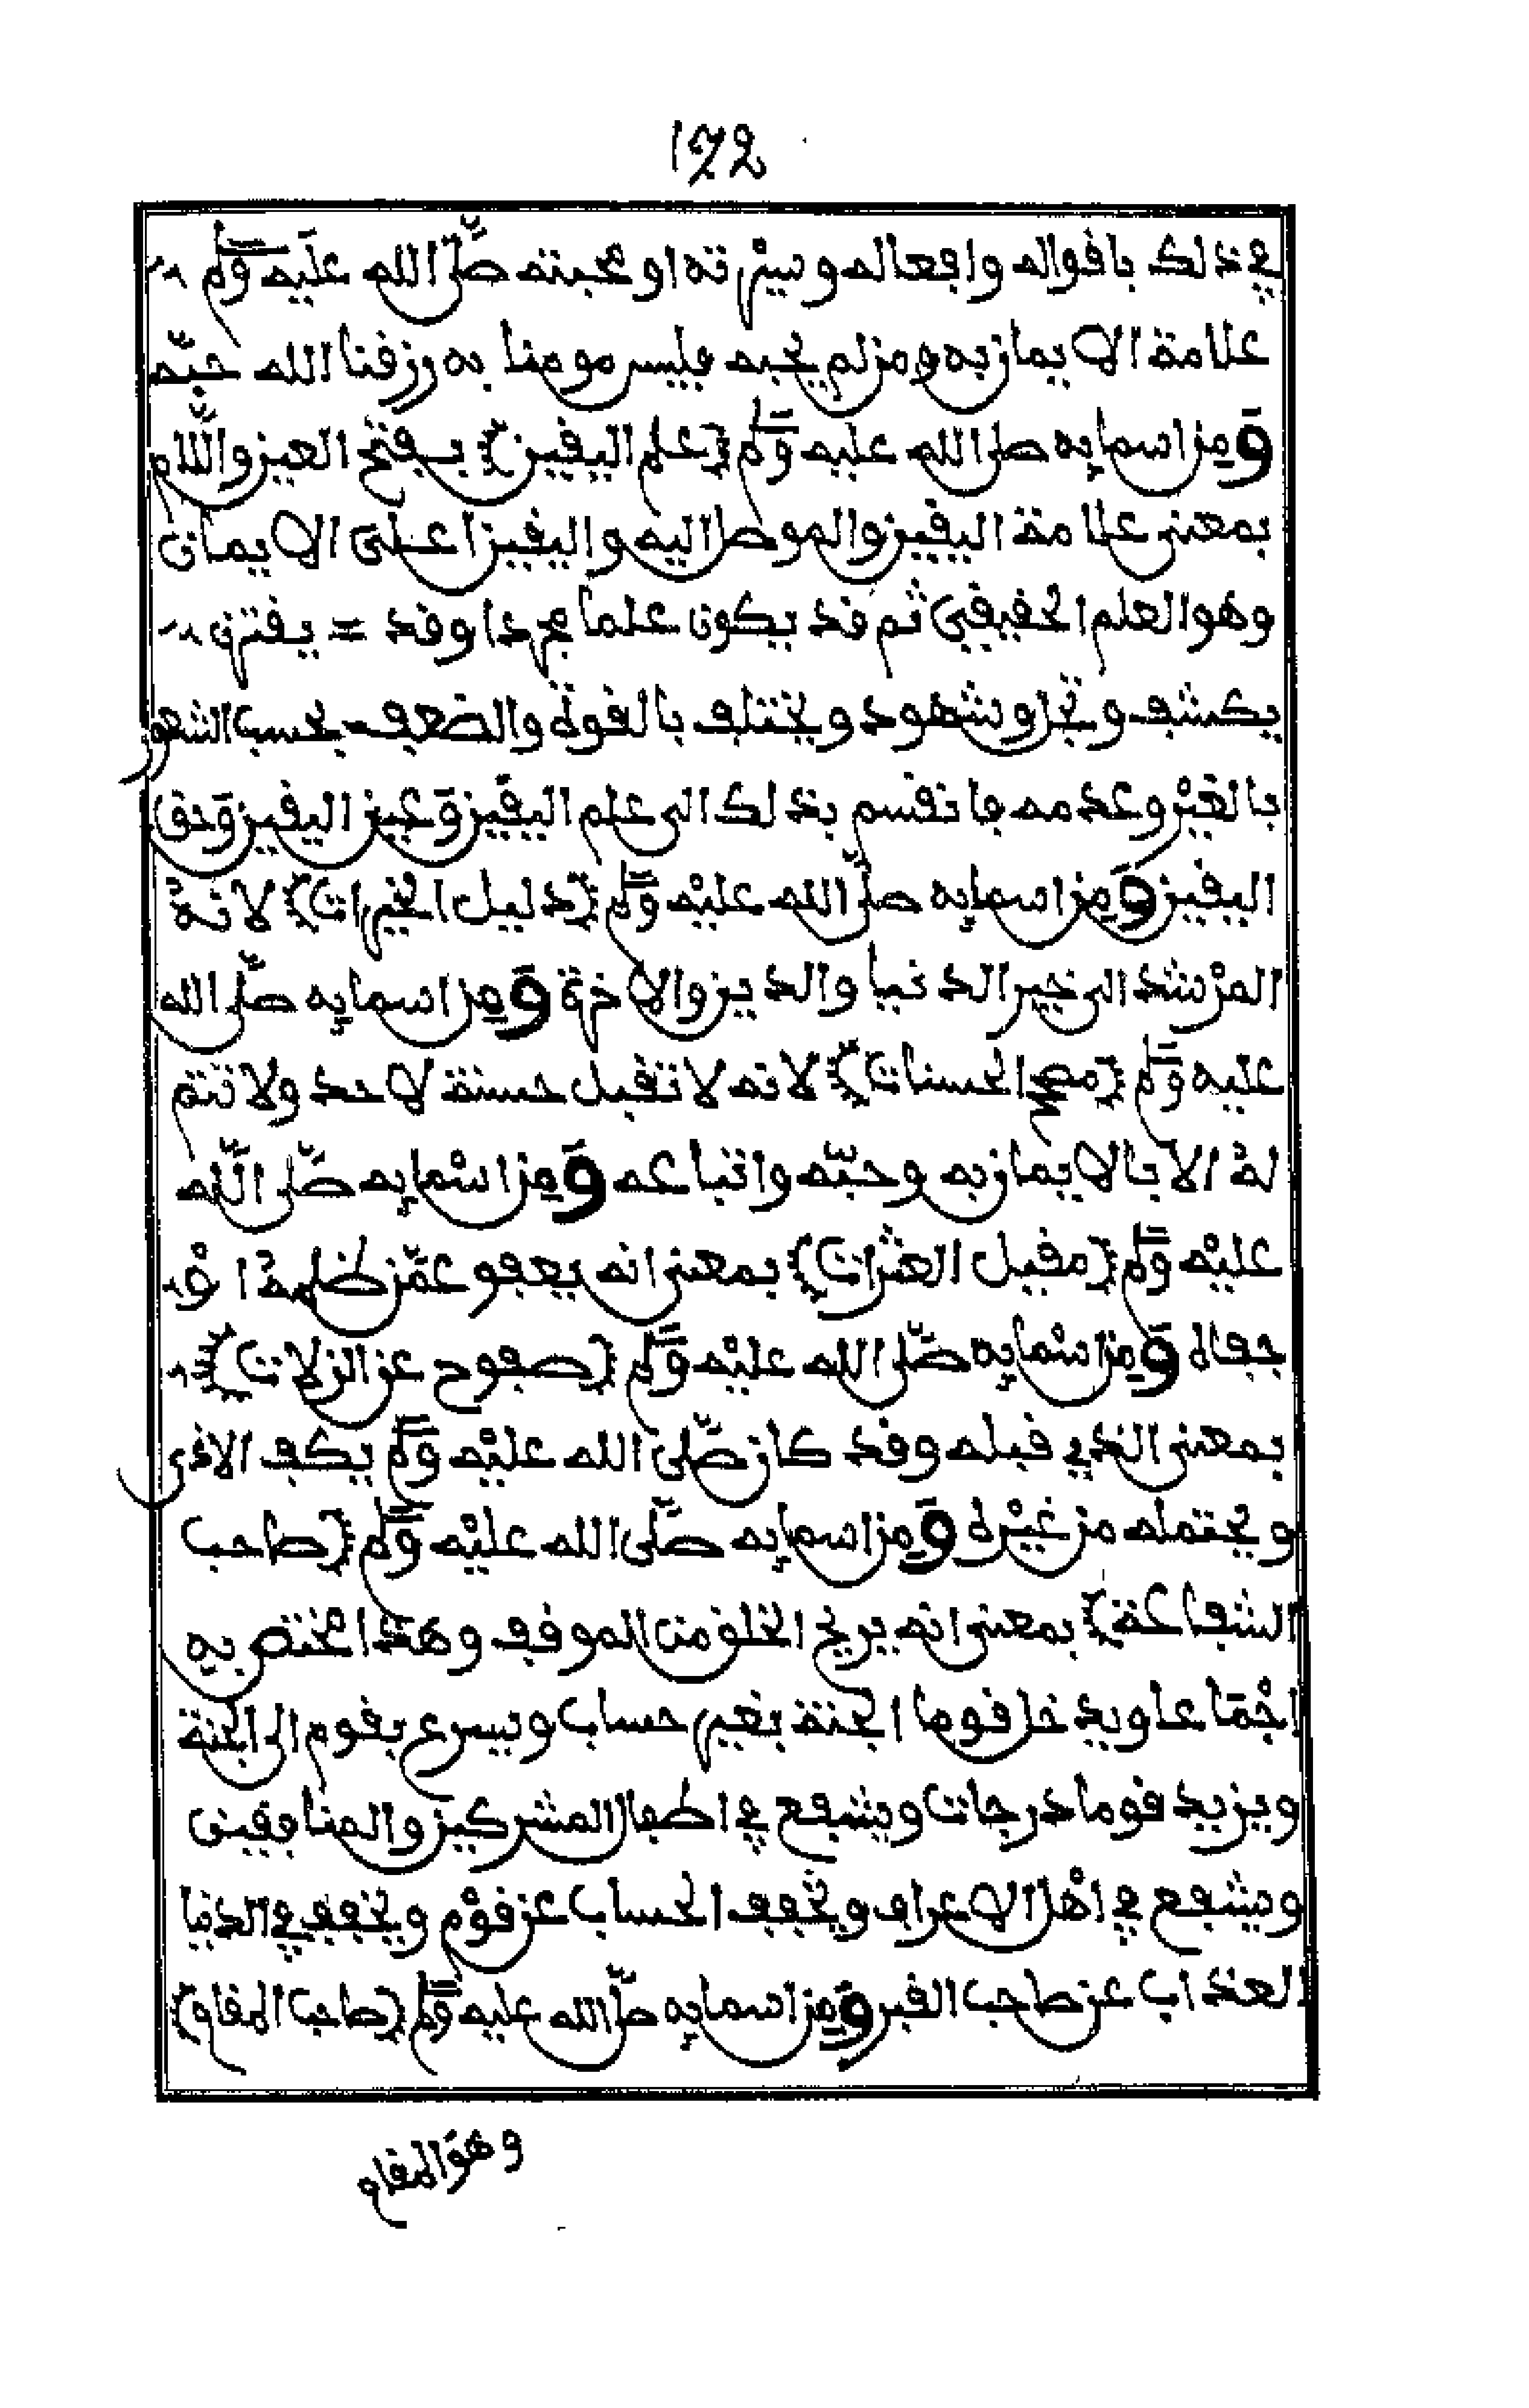 172
في ذلك باقواله وافعاله وسيرته او محبته صلى الله عليه وسلم
علامة الايمان به ومن لم يحبه فليس مومنا به رزقنا الله حبّه
وَمِن اسمايه صلى الله عليه وسلم (علم اليقين) بفتح العين واللام
بمعنى علامة اليقين والموصل اليه واليقين اعلى الايمان
وهو العلم الحقيقي ثم قد يكون علما مجردا وقد = يقترن
بكشف وتجل وشهود ويختلف بالقوة والضعف بحسب الشعور
بالغير وعدمه فانقسم بذلك الى علم اليقين وَعين اليقين وَحق
اليقين وَمِن اسمايه صلى الله عليه وسلم (دليل الخيرات) لانهُ
المرْشد الى خير الدنيا والدين والاخرة وَمِن اسمايه صلّى الله
عليه وسلم (مصحح الحسنات) لانه لا تقبل حسنة لاحد ولا تتم
لهُ الا بالايمان به وحبّه واتباعه وَمِن اسْمايه صلّى اللّه
عليْه وسلم (مقيل العثرات) بمعنى انه يعفو عمّن ظلمهُ اوْ
جفاه وَمِن اسْمايه صلّى الله عليْه وسلم (صفوح عن الزلات)
بمعنى الذي قبله وقد كان صلّى الله عليْه وسلم يكف الاذى
ويحتمله من غيْره وَمِن اسمايه صلّى الله عليْه وسلم (صاحب
الشفاعة) بمعنى انه يريح الخلق من الموقف وهذا مختص به
اجْمَاعا ويدخل قوما الجنة بغير حساب ويسرع بقوم الى الجنة
ويزيد قوما درجات ويشفع في اطفال المشركين والمنافقين
ويشفع في اهْل الاعراف ويخفف الحساب عن قوْم ويخفف في الدنيا
العذاب عن صاحب القبر وَمِن اسمايه صلّى الله عليه وسلم (صاحب المقام)
وهوَ المقام